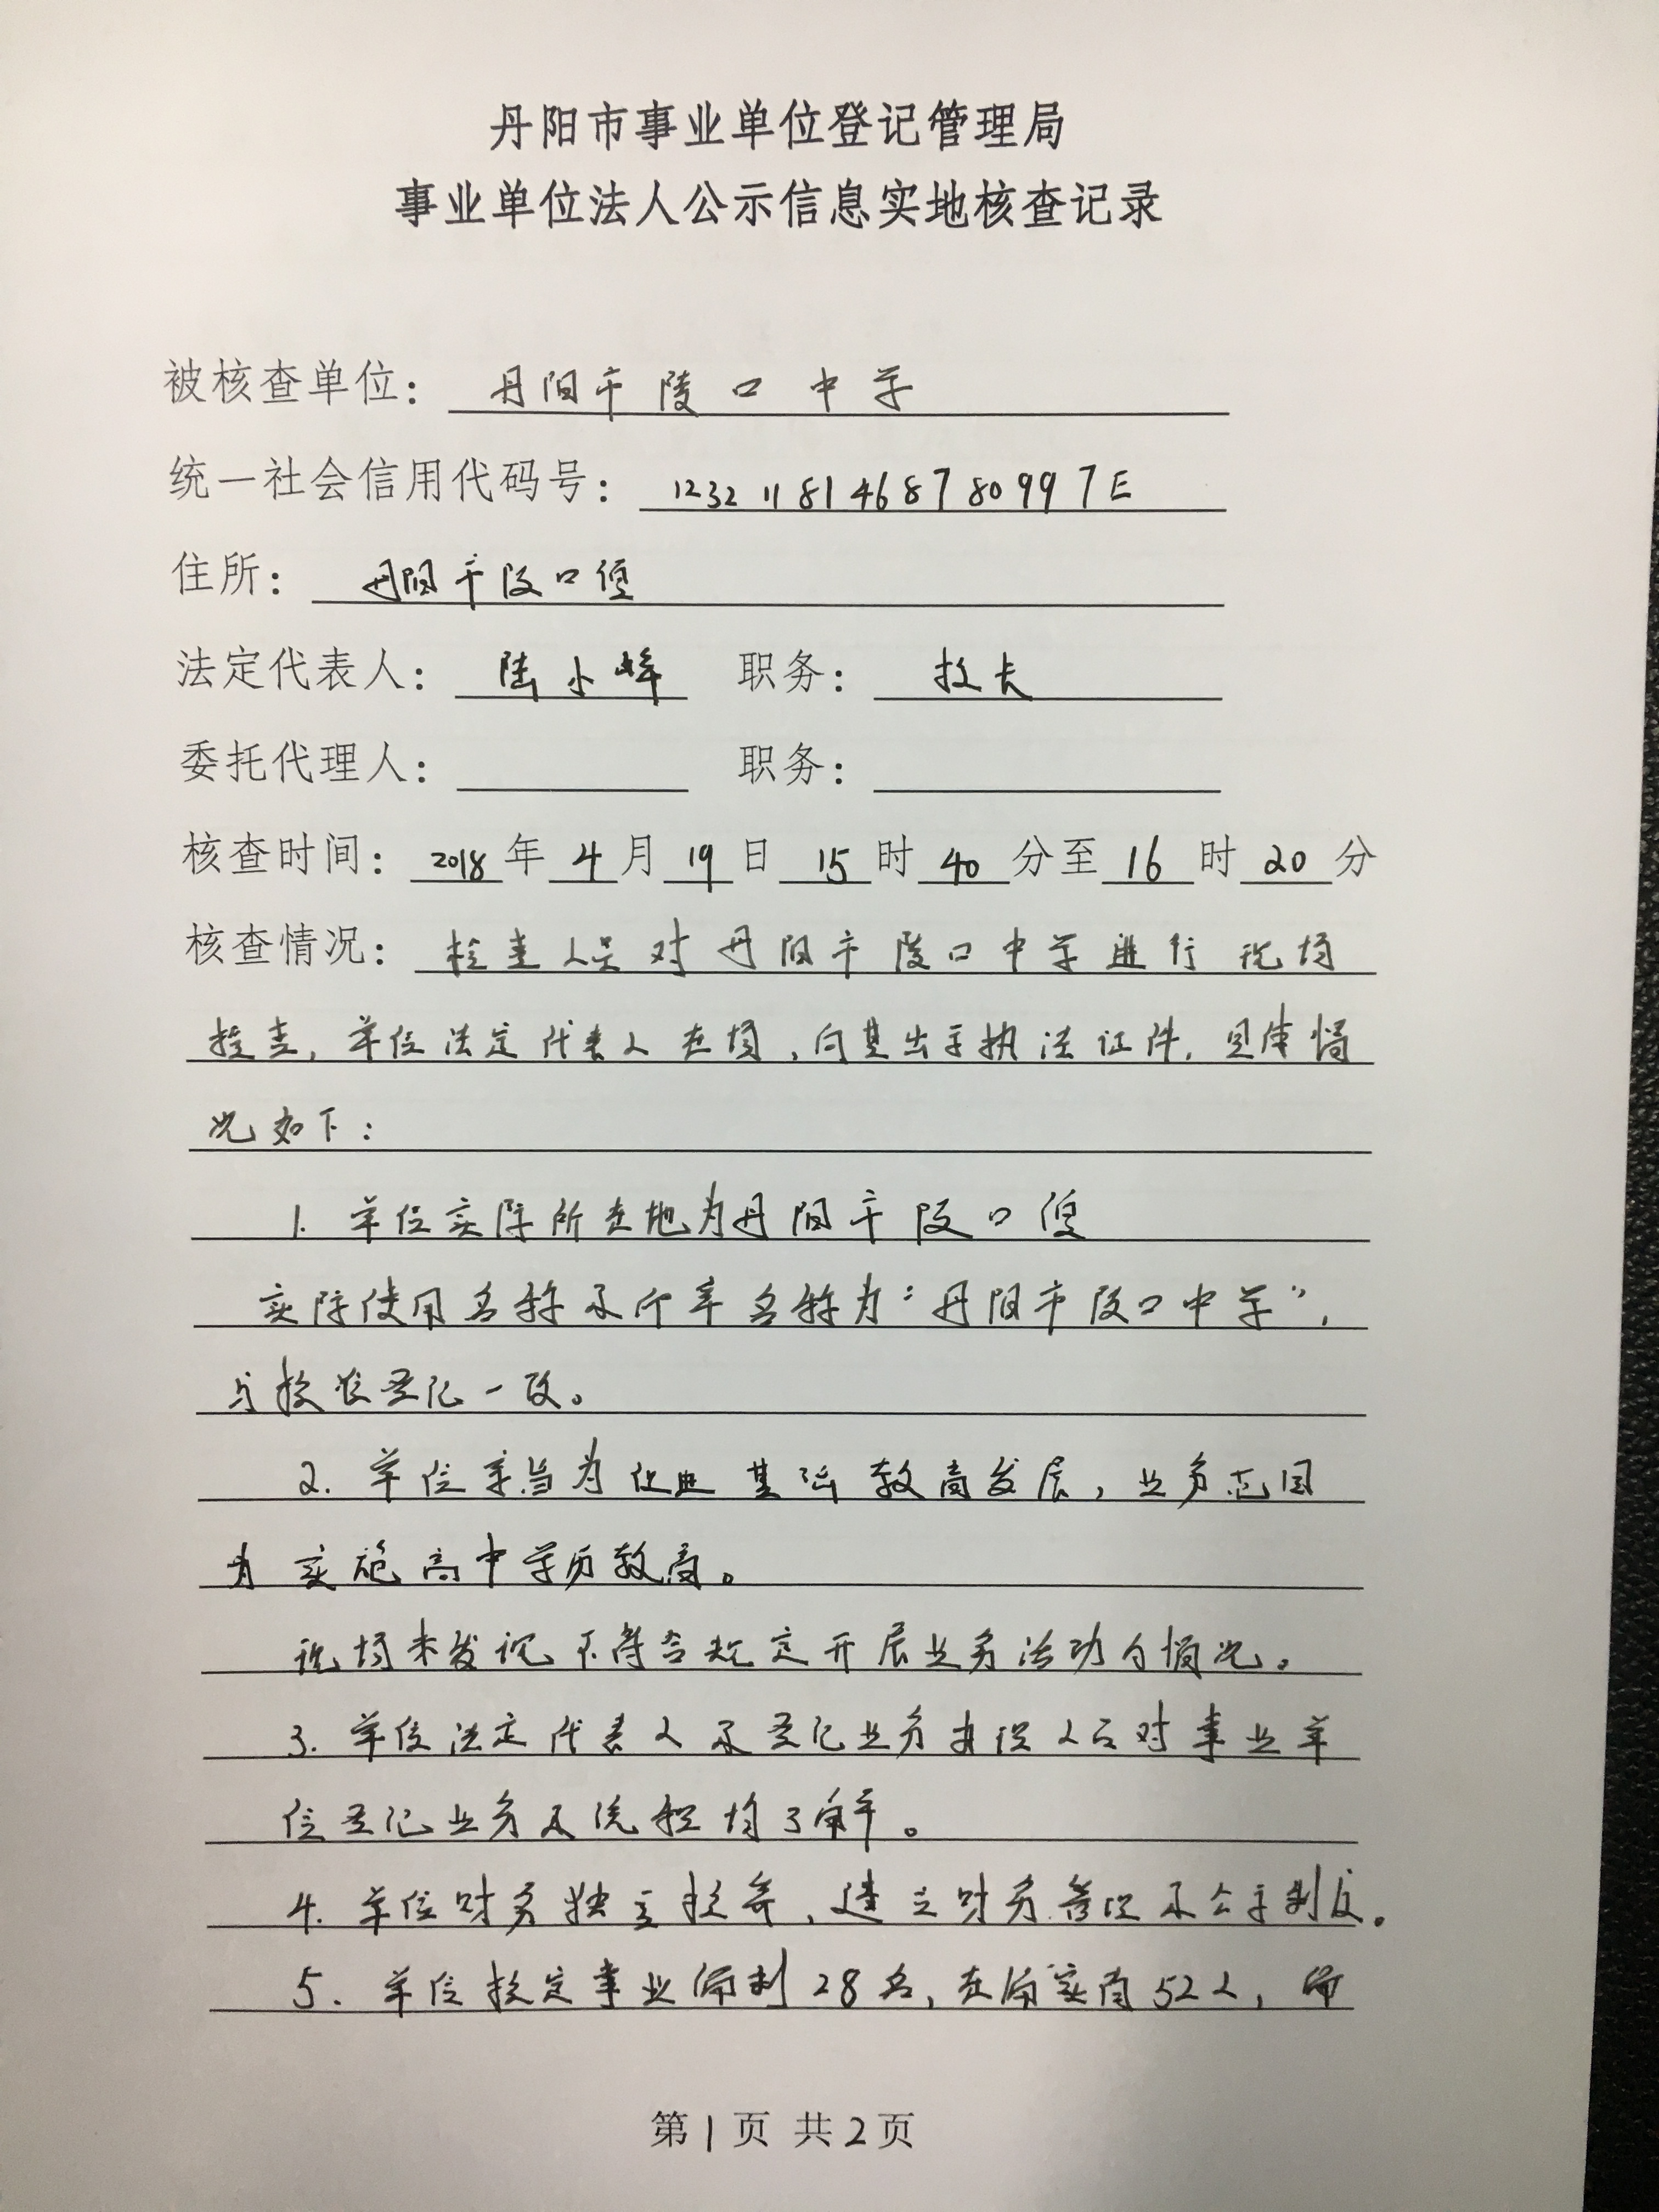 丹阳市事业单位登记管理局
事业单位法人公示信息实地核查记录
被核查单位： 丹阳市陵口中学
统一社会信用代码号： 12321181468780997E
住所： 丹阳市陵口镇
法定代表人： 陆小峰 职务： 校长
委托代理人： 职务：
核查时间： 2018 年 4 月 19 日 15 时 40 分至 16 时 20 分
核查情况： 检查人员对丹阳市陵口中学进行现场
检查，单位法定代表人在场，向其出示执法证件，具体情
况如下：
1. 单位实际所在地为丹阳市陵口镇
实际使用名称及所牵名称为“丹阳市陵口中学”，
与核准登记一致。
2. 单位宗旨为促进基础教育发展，业务范围
为实施高中学历教育。
现场未发现不符合规定开展业务活动的情况。
3. 单位法定代表人及登记业务办理人员对事业单
位登记业务及流程均了解。
4. 单位财务独立核算，建立财务管理及公示制度。
5. 单位核定事业编制28名，在编实有52人，编
第1页 共2页